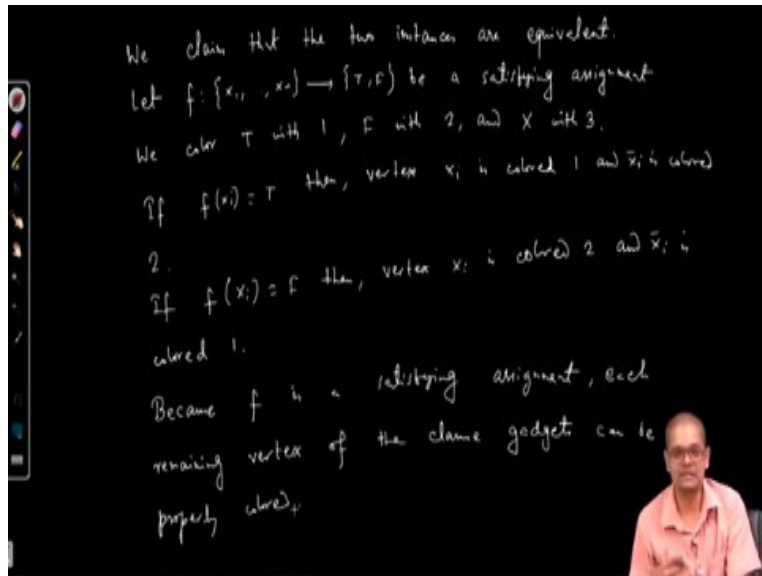 We claim that the two instances are equivalent.
Let f: {x₁, . . , xₙ} → {T, F} be a satisfying assignment
We color T with 1, F with 2, and X with 3.
If f(xᵢ) = T then, vertex xᵢ is colored 1 and x̄ᵢ is colored
2.
If f(xᵢ) = F then, vertex xᵢ is colored 2 and x̄ᵢ is
colored 1.
Because f is a satisfying assignment, each
remaining vertex of the clause gadgets can be
properly colored.